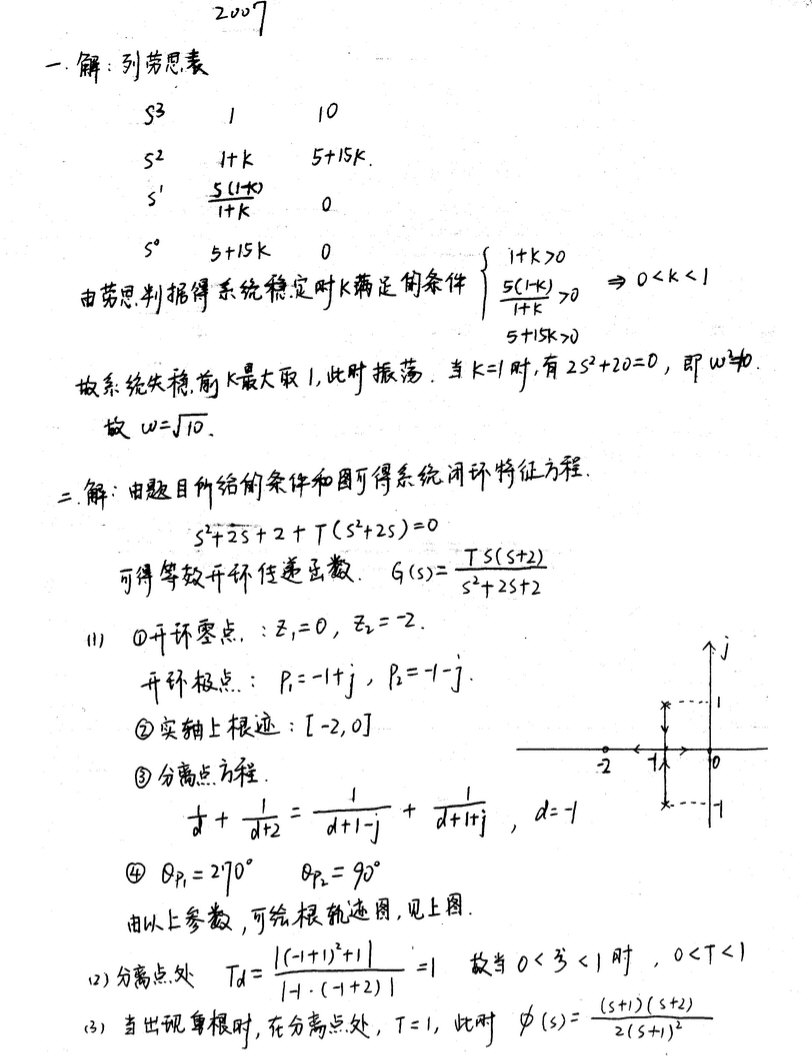 2007
一. 解: 列劳思表
S³ 1 10
S² 1+K 5+15K.
S¹ 5(1-K)/1+K 0
S⁰ 5+15K 0
由劳思判据得系统稳定时K满足的条件 { 1+K>0 5(1-K)/1+K >0 5+15K>0 ⇒ 0<K<1
故系统失稳前K最大取1,此时振荡. 当K=1时,有2S²+20=0, 即
故 ω=√10.
二. 解: 由题目所给的条件和图可得系统闭环特征方程.
S²+2S+2+T(S²+2S)=0
可得等效开环传递函数. G(S)= TS(S+2)/S²+2S+2
(1) ①开环零点.: Z₁=0, Z₂=-2.
开环极点: P₁=-1+j, P₂=-1-j.
②实轴上根迹: [-2,0]
③分离点方程.
1/d + 1/d+2 = 1/d+1-j + 1/d+1+j , d=-1
④ θP₁=270° θP₂=90°
由以上参数,可绘根轨迹图,见上图.
j
1
-2 -1 0
-1
(2) 分离点处 Td= |(-1+1)²+1|/|-1·(-1+2)| =1 故当0<ξ<1时, 0<T<1
(3) 当出现重根时,在分离点处, T=1, 此时 φ(s)= (S+1)(S+2)/2(S+1)²